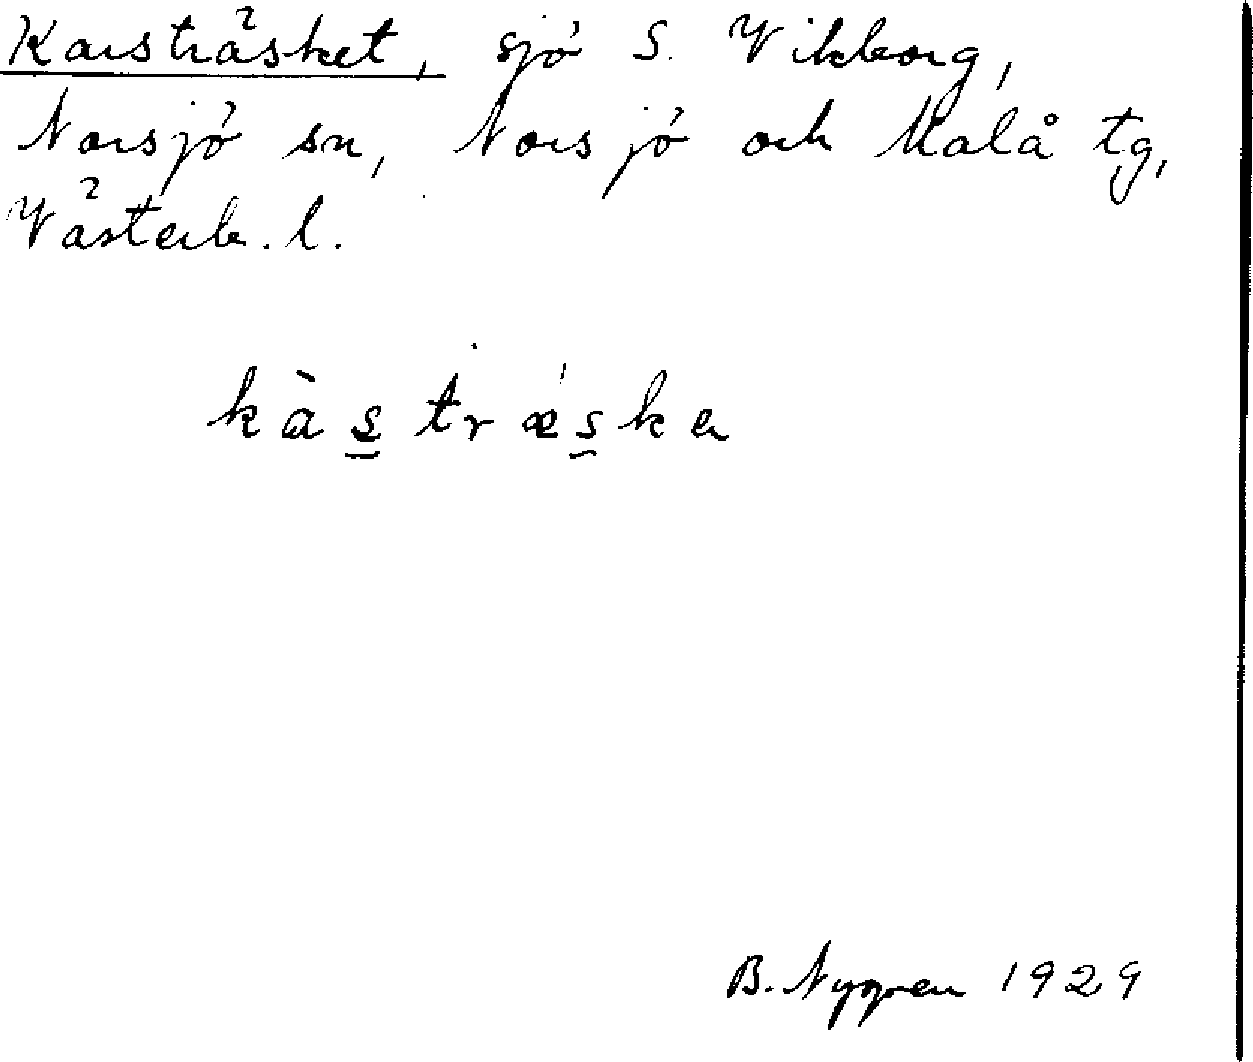 Karsträsket, sjö S. Vikborg,
Norsjö sn, Norsjö och Malå tg,
Västerb. l.
kàs̲trǽska
B. Nygren 1929